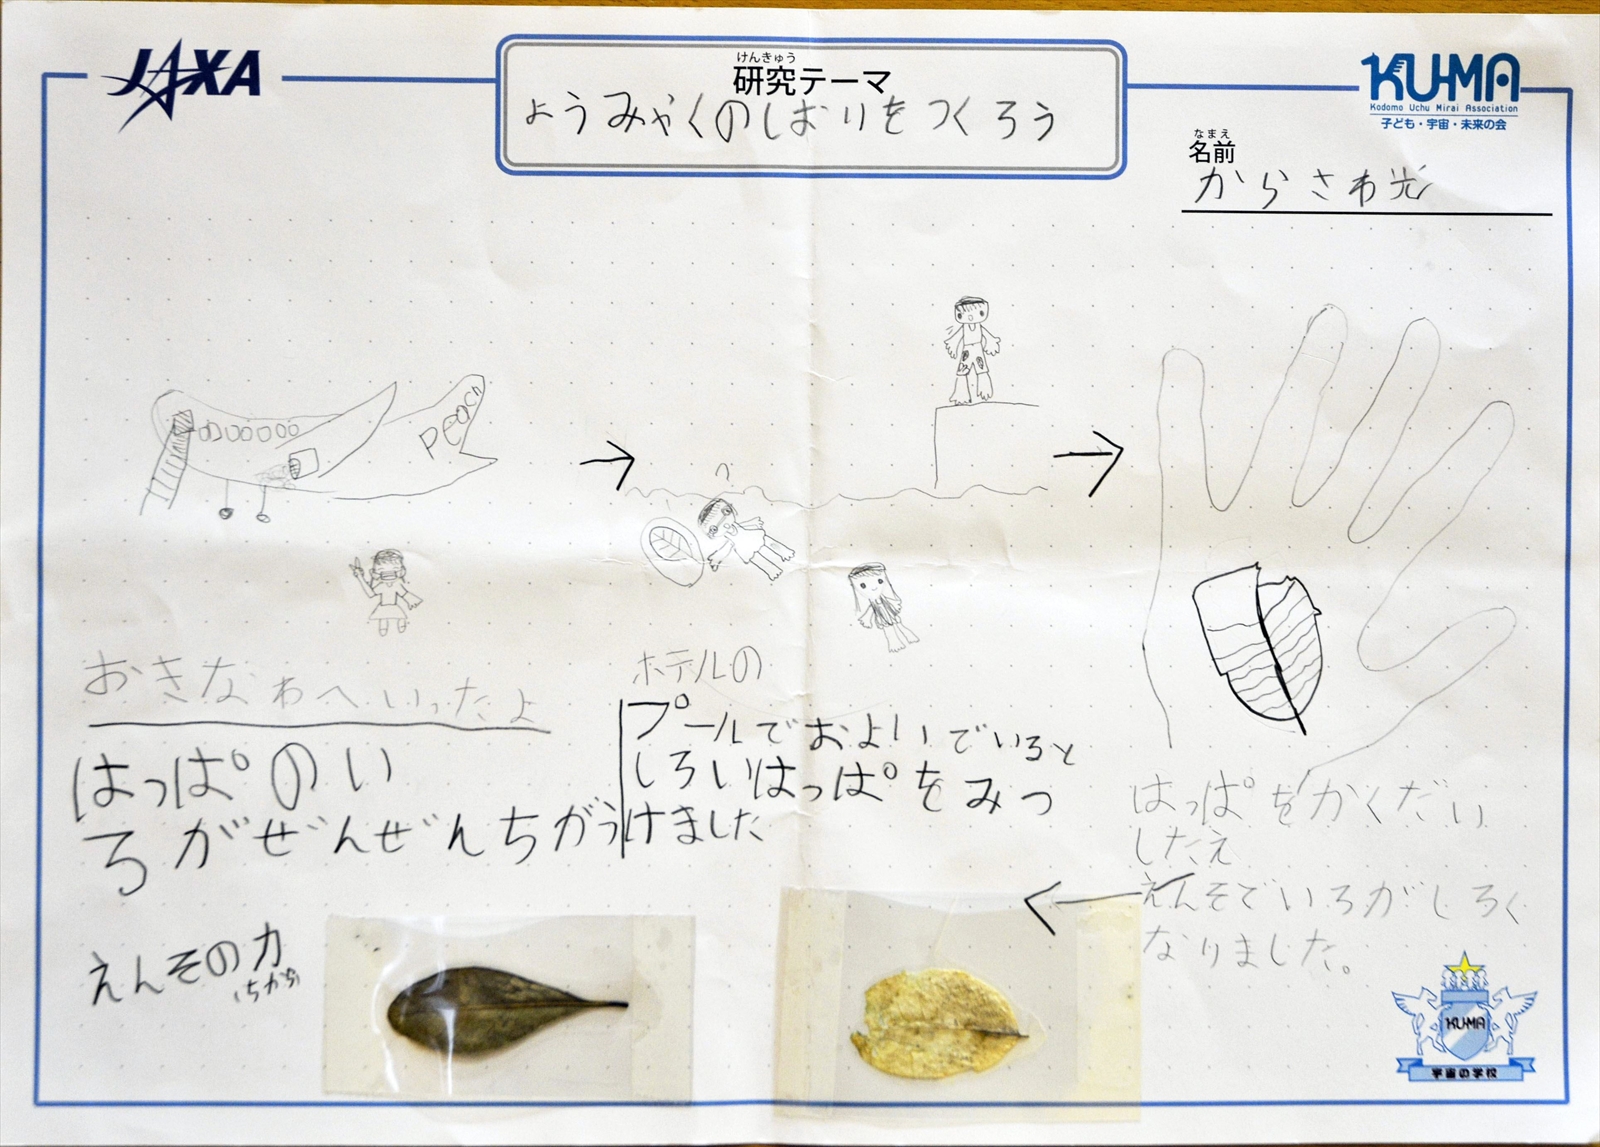 JAXA
けんきゅう
研究テーマ
ようみゃくのしおりをつくろう
KUMA
Kodomo Uchu Mirai Association
子ども・宇宙・未来の会
なまえ
名前
からさわ光
peach
おきなわへいったよ
はっぱのい
ろがぜんぜんちがう
えんその力
(ちから)
ホテルの
プールでおよいでいると
しろいはっぱをみつ
けました
はっぱをかくだい
したえ
えんそでいろがしろく
なりました。
KUMA
宇宙の学校